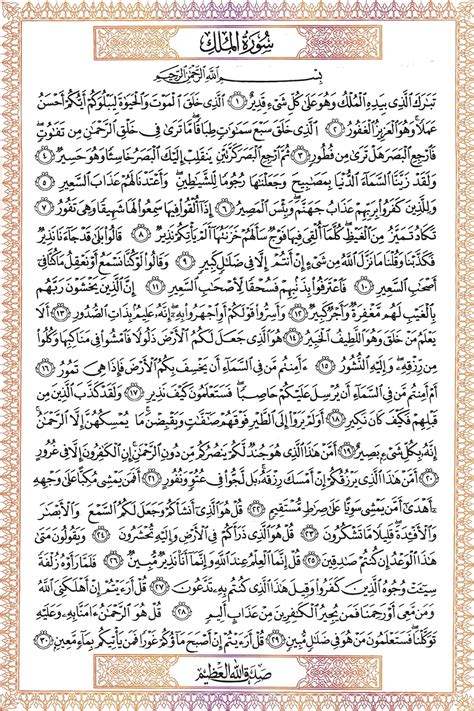 سُورَةُ المُلْك
بِسْمِ اللَّهِ الرَّحْمَٰنِ الرَّحِيمِ
تَبَٰرَكَ الَّذِي بِيَدِهِ الْمُلْكُ وَهُوَ عَلَىٰ كُلِّ شَيْءٍ قَدِيرٌ ﴿١﴾ الَّذِي خَلَقَ الْمَوْتَ وَالْحَيَوٰةَ لِيَبْلُوَكُمْ أَيُّكُمْ أَحْسَنُ
عَمَلًا وَهُوَ الْعَزِيزُ الْغَفُورُ ﴿٢﴾ الَّذِي خَلَقَ سَبْعَ سَمَٰوَٰتٍ طِبَاقًا مَّا تَرَىٰ فِي خَلْقِ الرَّحْمَٰنِ مِن تَفَٰوُتٍ
فَارْجِعِ الْبَصَرَ هَلْ تَرَىٰ مِن فُطُورٍ ﴿٣﴾ ثُمَّ ارْجِعِ الْبَصَرَ كَرَّتَيْنِ يَنقَلِبْ إِلَيْكَ الْبَصَرُ خَاسِئًا وَهُوَ حَسِيرٌ ﴿٤﴾
وَلَقَدْ زَيَّنَّا السَّمَاءَ الدُّنْيَا بِمَصَٰبِيحَ وَجَعَلْنَٰهَا رُجُومًا لِّلشَّيَٰطِينِ وَأَعْتَدْنَا لَهُمْ عَذَابَ السَّعِيرِ ﴿٥﴾
وَلِلَّذِينَ كَفَرُوا بِرَبِّهِمْ عَذَابُ جَهَنَّمَ وَبِئْسَ الْمَصِيرُ ﴿٦﴾ إِذَا أُلْقُوا فِيهَا سَمِعُوا لَهَا شَهِيقًا وَهِيَ تَفُورُ ﴿٧﴾
تَكَادُ تَمَيَّزُ مِنَ الْغَيْظِ كُلَّمَا أُلْقِيَ فِيهَا فَوْجٌ سَأَلَهُمْ خَزَنَتُهَا أَلَمْ يَأْتِكُمْ نَذِيرٌ ﴿٨﴾ قَالُوا بَلَىٰ قَدْ جَاءَنَا نَذِيرٌ
فَكَذَّبْنَا وَقُلْنَا مَا نَزَّلَ اللَّهُ مِن شَيْءٍ إِنْ أَنتُمْ إِلَّا فِي ضَلَٰلٍ كَبِيرٍ ﴿٩﴾ وَقَالُوا لَوْ كُنَّا نَسْمَعُ أَوْ نَعْقِلُ مَا كُنَّا فِي
أَصْحَٰبِ السَّعِيرِ ﴿١٠﴾ فَاعْتَرَفُوا بِذَنبِهِمْ فَسُحْقًا لِّأَصْحَٰبِ السَّعِيرِ ﴿١١﴾ إِنَّ الَّذِينَ يَخْشَوْنَ رَبَّهُم
بِالْغَيْبِ لَهُم مَّغْفِرَةٌ وَأَجْرٌ كَبِيرٌ ﴿١٢﴾ وَأَسِرُّوا قَوْلَكُمْ أَوِ اجْهَرُوا بِهِ إِنَّهُ عَلِيمٌ بِذَاتِ الصُّدُورِ ﴿١٣﴾ أَلَا
يَعْلَمُ مَنْ خَلَقَ وَهُوَ اللَّطِيفُ الْخَبِيرُ ﴿١٤﴾ هُوَ الَّذِي جَعَلَ لَكُمُ الْأَرْضَ ذَلُولًا فَامْشُوا فِي مَنَاكِبِهَا وَكُلُوا
مِن رِّزْقِهِ وَإِلَيْهِ النُّشُورُ ﴿١٥﴾ ءَأَمِنتُم مَّن فِي السَّمَاءِ أَن يَخْسِفَ بِكُمُ الْأَرْضَ فَإِذَا هِيَ تَمُورُ ﴿١٦﴾
أَمْ أَمِنتُم مَّن فِي السَّمَاءِ أَن يُرْسِلَ عَلَيْكُمْ حَاصِبًا فَسَتَعْلَمُونَ كَيْفَ نَذِيرِ ﴿١٧﴾ وَلَقَدْ كَذَّبَ الَّذِينَ مِن
قَبْلِهِمْ فَكَيْفَ كَانَ نَكِيرِ ﴿١٨﴾ أَوَلَمْ يَرَوْا إِلَى الطَّيْرِ فَوْقَهُمْ صَٰفَّٰتٍ وَيَقْبِضْنَ مَا يُمْسِكُهُنَّ إِلَّا الرَّحْمَٰنُ
إِنَّهُ بِكُلِّ شَيْءٍ بَصِيرٌ ﴿١٩﴾ أَمَّنْ هَٰذَا الَّذِي هُوَ جُندٌ لَّكُمْ يَنصُرُكُم مِّن دُونِ الرَّحْمَٰنِ إِنِ الْكَٰفِرُونَ إِلَّا فِي غُرُورٍ
﴿٢٠﴾ أَمَّنْ هَٰذَا الَّذِي يَرْزُقُكُمْ إِنْ أَمْسَكَ رِزْقَهُ بَل لَّجُّوا فِي عُتُوٍّ وَنُفُورٍ ﴿٢١﴾ أَفَمَن يَمْشِي مُكِبًّا عَلَىٰ وَجْهِهِ
أَهْدَىٰ أَمَّن يَمْشِي سَوِيًّا عَلَىٰ صِرَٰطٍ مُّسْتَقِيمٍ ﴿٢٢﴾ قُلْ هُوَ الَّذِي أَنشَأَكُمْ وَجَعَلَ لَكُمُ السَّمْعَ وَالْأَبْصَٰرَ
وَالْأَفْئِدَةَ قَلِيلًا مَّا تَشْكُرُونَ ﴿٢٣﴾ قُلْ هُوَ الَّذِي ذَرَأَكُمْ فِي الْأَرْضِ وَإِلَيْهِ تُحْشَرُونَ ﴿٢٤﴾ وَيَقُولُونَ مَتَىٰ
هَٰذَا الْوَعْدُ إِن كُنتُمْ صَٰدِقِينَ ﴿٢٥﴾ قُلْ إِنَّمَا الْعِلْمُ عِندَ اللَّهِ وَإِنَّمَا أَنَا نَذِيرٌ مُّبِينٌ ﴿٢٦﴾ فَلَمَّا رَأَوْهُ زُلْفَةً
سِيئَتْ وُجُوهُ الَّذِينَ كَفَرُوا وَقِيلَ هَٰذَا الَّذِي كُنتُم بِهِ تَدَّعُونَ ﴿٢٧﴾ قُلْ أَرَءَيْتُمْ إِنْ أَهْلَكَنِيَ اللَّهُ
وَمَن مَّعِيَ أَوْ رَحِمَنَا فَمَن يُجِيرُ الْكَٰفِرِينَ مِنْ عَذَابٍ أَلِيمٍ ﴿٢٨﴾ قُلْ هُوَ الرَّحْمَٰنُ ءَامَنَّا بِهِ وَعَلَيْهِ
تَوَكَّلْنَا فَسَتَعْلَمُونَ مَنْ هُوَ فِي ضَلَٰلٍ مُّبِينٍ ﴿٢٩﴾ قُلْ أَرَءَيْتُمْ إِنْ أَصْبَحَ مَاؤُكُمْ غَوْرًا فَمَن يَأْتِيكُم بِمَاءٍ مَّعِينٍ ﴿٣٠﴾
صَدَقَ اللهُ العَظِيم